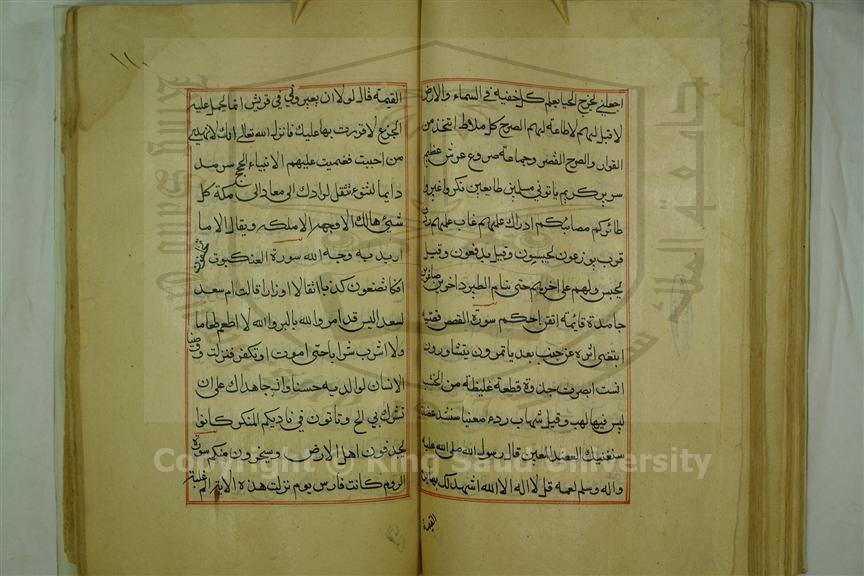 اجعلني يخرج الخبا يعلم كل خفية في السماء والارض
لا قبل لهم لا طاقة لهم الصرح كل ملاط اتخذ من
القوارير والصرح القصر وجماعة صروح عرش عظيم
سرير كريم ياتوني مسلمين طايعين نكروا غيروا
طائركم مصائبكم ادراك علمهم غاب علمهم
قوب يوزعون يحبسون وقيل يدفعون وقيل
يحبس اولهم على اخرهم حتى تنام الطير داخرين صاغرين
جامدة قايمة اتقن احكم سورة القصص قصيه
ابتغي اثره عن جنب بعد ياتمرون يتشاورون
انست ابصرت جذوة قطعة غليظة من الخشب
ليس فيها لهب وقيل شهاب ردء معينا سنشد عضدك
سنعينك العضد المعين قال رسول الله صلى الله عليه
واله وسلم لعمه قل لا اله الا الله اشهد لك بها يوم
القيمة
١١٠
القيمة قال لولا ان يعيروني في قريش انما يحمل عليه
الجزع لاقررت بها عليك فانزل الله تعالى انك لا تهدي
من احببت فعميت عليهم الانباء الحجج سرمد
دايما لتنوء تثقل لرادك الى معاد الى مكة كل
شيئ هالك الا وجهه الا ملكه ويقال الا ما
اريد به وجه الله سورة العنكبوت
افكا تصنعون كذبا اثقالا اوزارا قالت ام سعد
لسعد اليس قد امر الله بالبر والله لا اطعم طعاما
ولا اشرب شرابا حتى اموت او تكفر فنزلت ووصينا
الانسان لوالديه حسنا وان جاهداك على ان
تشرك بي الخ وتاتون في ناديكم المنكر كانوا
يحذفون اهل الارض ويسخرون منهم سورة
الروم كانت فارس يوم نزلت هذه الاية الم غلبت
Copyright © King Saud University